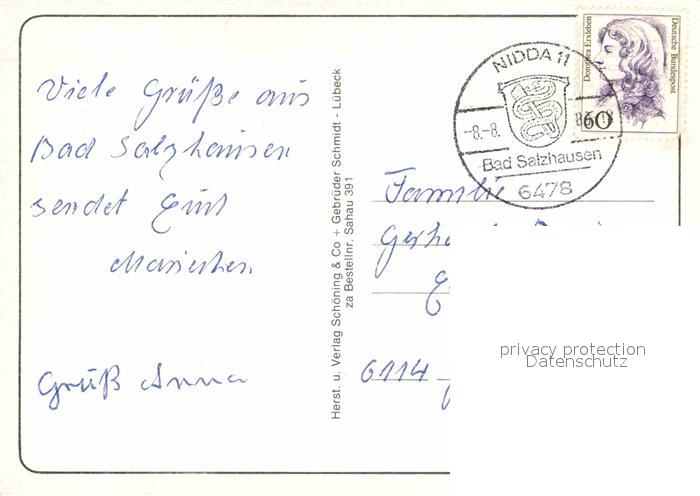 Viele Grüße aus
Bad Salzhausen
sendet Euch
Mariechen
Gruß Anna
Herst. u. Verlag Schöning & Co + Gebrüder Schmidt - Lübeck
za Bestellnr. Sahau 391
NIDDA 11
-8.-8.
Bad Salzhausen
6478
Dorothea Erxleben
Deutsche Bundespost
60
Familie
6114
privacy protection
Datenschutz